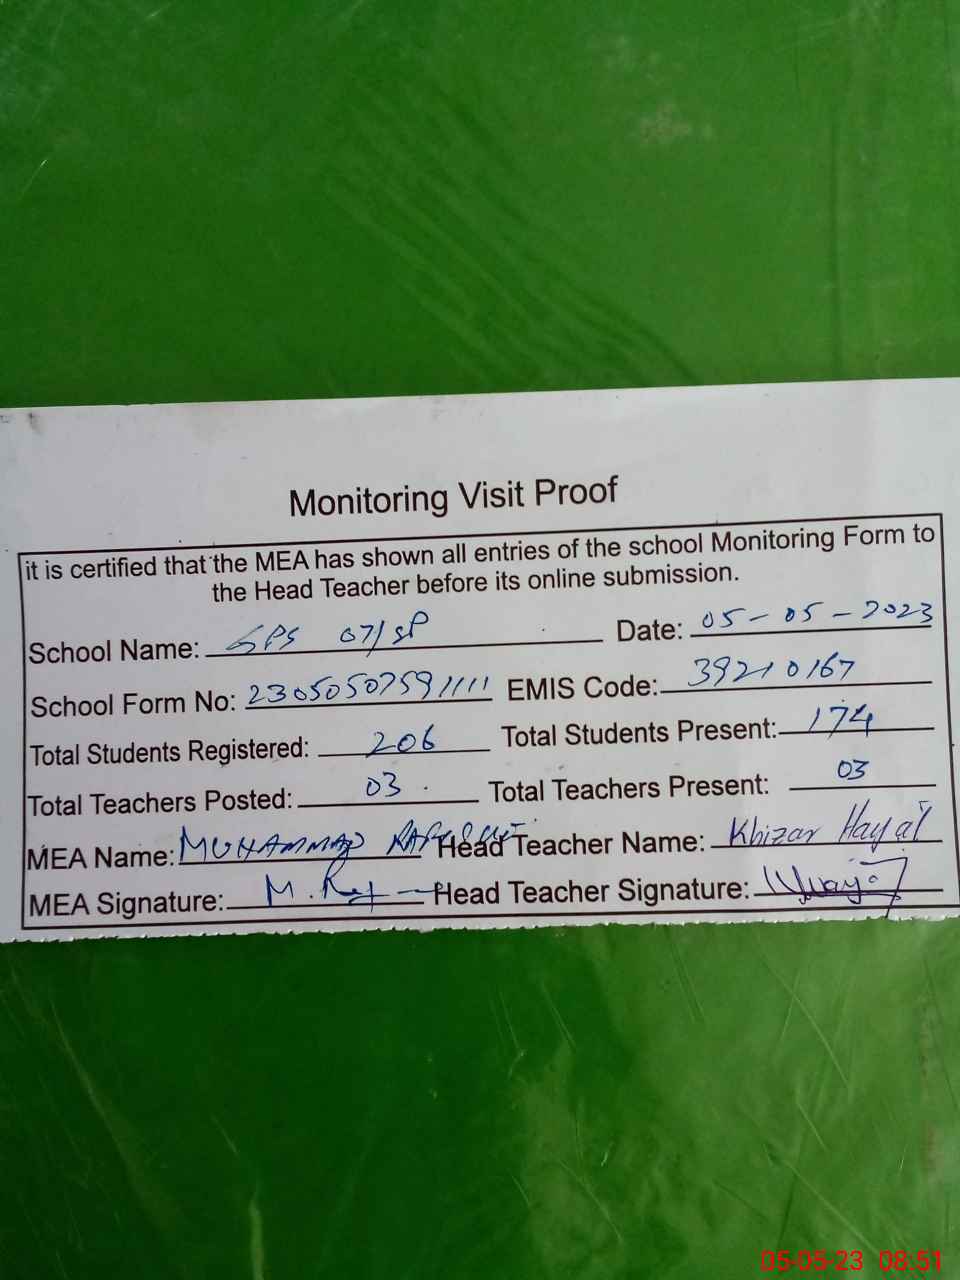 Monitoring Visit Proof
it is certified that the MEA has shown all entries of the school Monitoring Form to
the Head Teacher before its online submission.
School Name: GPS 07/SP Date: 05-05-2023
School Form No: 23050507591111 EMIS Code: 39210167
Total Students Registered: 206 Total Students Present: 174
Total Teachers Posted: 03 Total Teachers Present: 03
MEA Name: MUHAMMAD Head Teacher Name: Khizar Hayat
MEA Signature: Head Teacher Signature:
05-05-23 08:51